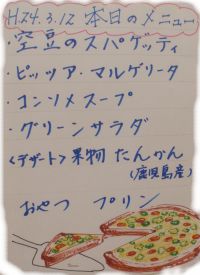 H24.3.12 本日のメニュー
・空豆のスパゲッティ
・ピッツァ・マルゲリータ
・コンソメスープ
・グリーンサラダ
<デザート>果物 たんかん
(鹿児島産)
おやつ プリン